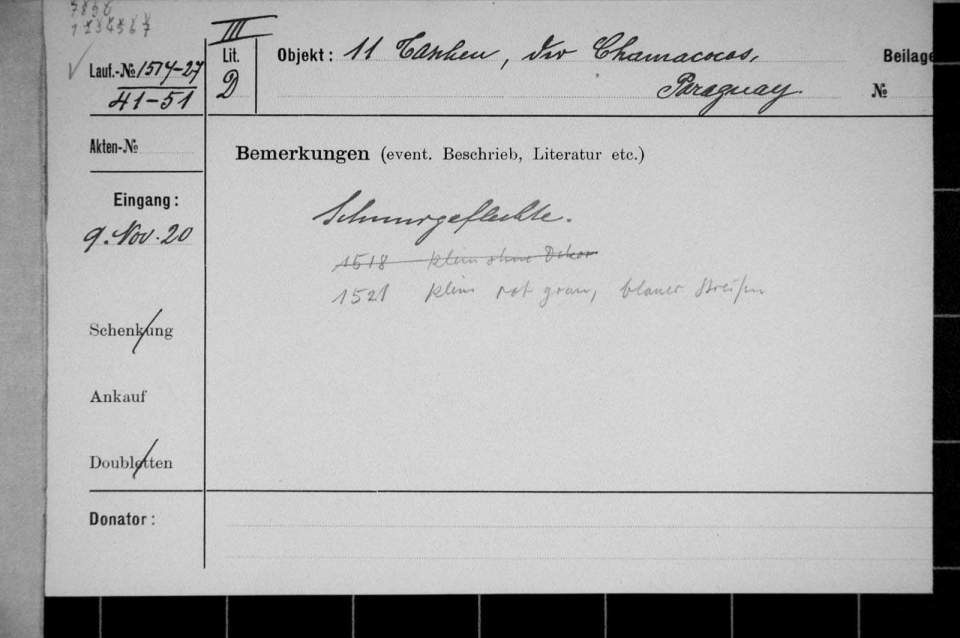 7898
1234567
III
Lauf.-№ 1517-27
41-51
Lit.
D
Objekt: 11 Taschen, der Chamacocos,
Paraguay
Beilage
№
Akten-№
Bemerkungen (event. Beschrieb, Literatur etc.)
Eingang:
9. Nov. 20
Schnurgeflechte.
1518 klein ohne Dekor
1521 klein rot grau, blauer Streifen
Schenkung
Ankauf
Doubletten
Donator: